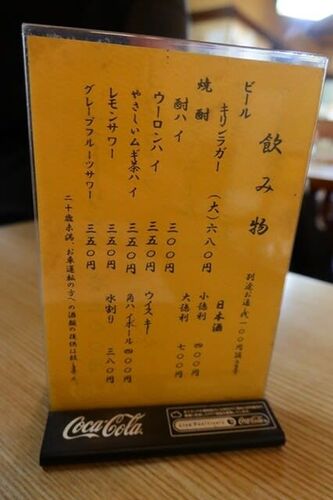 飲み物
別途お通し代一〇〇円頂きます
ビール
キリンラガー (大)六八〇円
焼酎
酎ハイ 三〇〇円
ウーロンハイ 三五〇円
やさしいムギ茶ハイ 三五〇円
レモンサワー 三五〇円
グレープフルーツサワー 三五〇円
日本酒
小徳利 四〇〇円
大徳利 七〇〇円
ウイスキー
角ハイボール 四〇〇円
水割り 三八〇円
二十歳未満、お車運転の方への酒類の提供は致しません
Coca-Cola
Live Positively
Coca-Cola